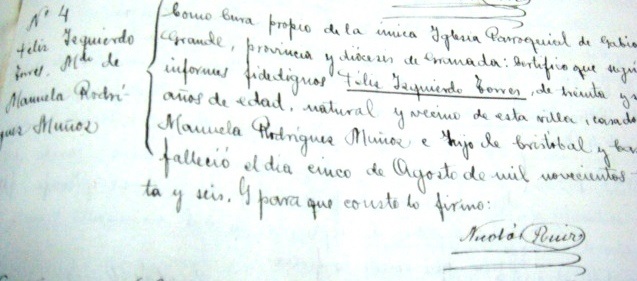 Nº 4
Felix Izquierdo
Torres. Mdo de
Manuela Rodrí-
guez Muñoz
Como Cura propio de la unica Iglesia Parroquial de Gabia
Grande, provincia y diócesis de Granada: Certifico que segun
informes fidedignos Felix Izquierdo Torres, de treinta y
años de edad, natural y vecino de esta villa, casado
Manuela Rodríguez Muñoz e hijo de Cristobal y
falleció el dia cinco de Agosto de mil novecientos
ta y seis. Y para que conste lo firmo:
Nicolás Ruiz